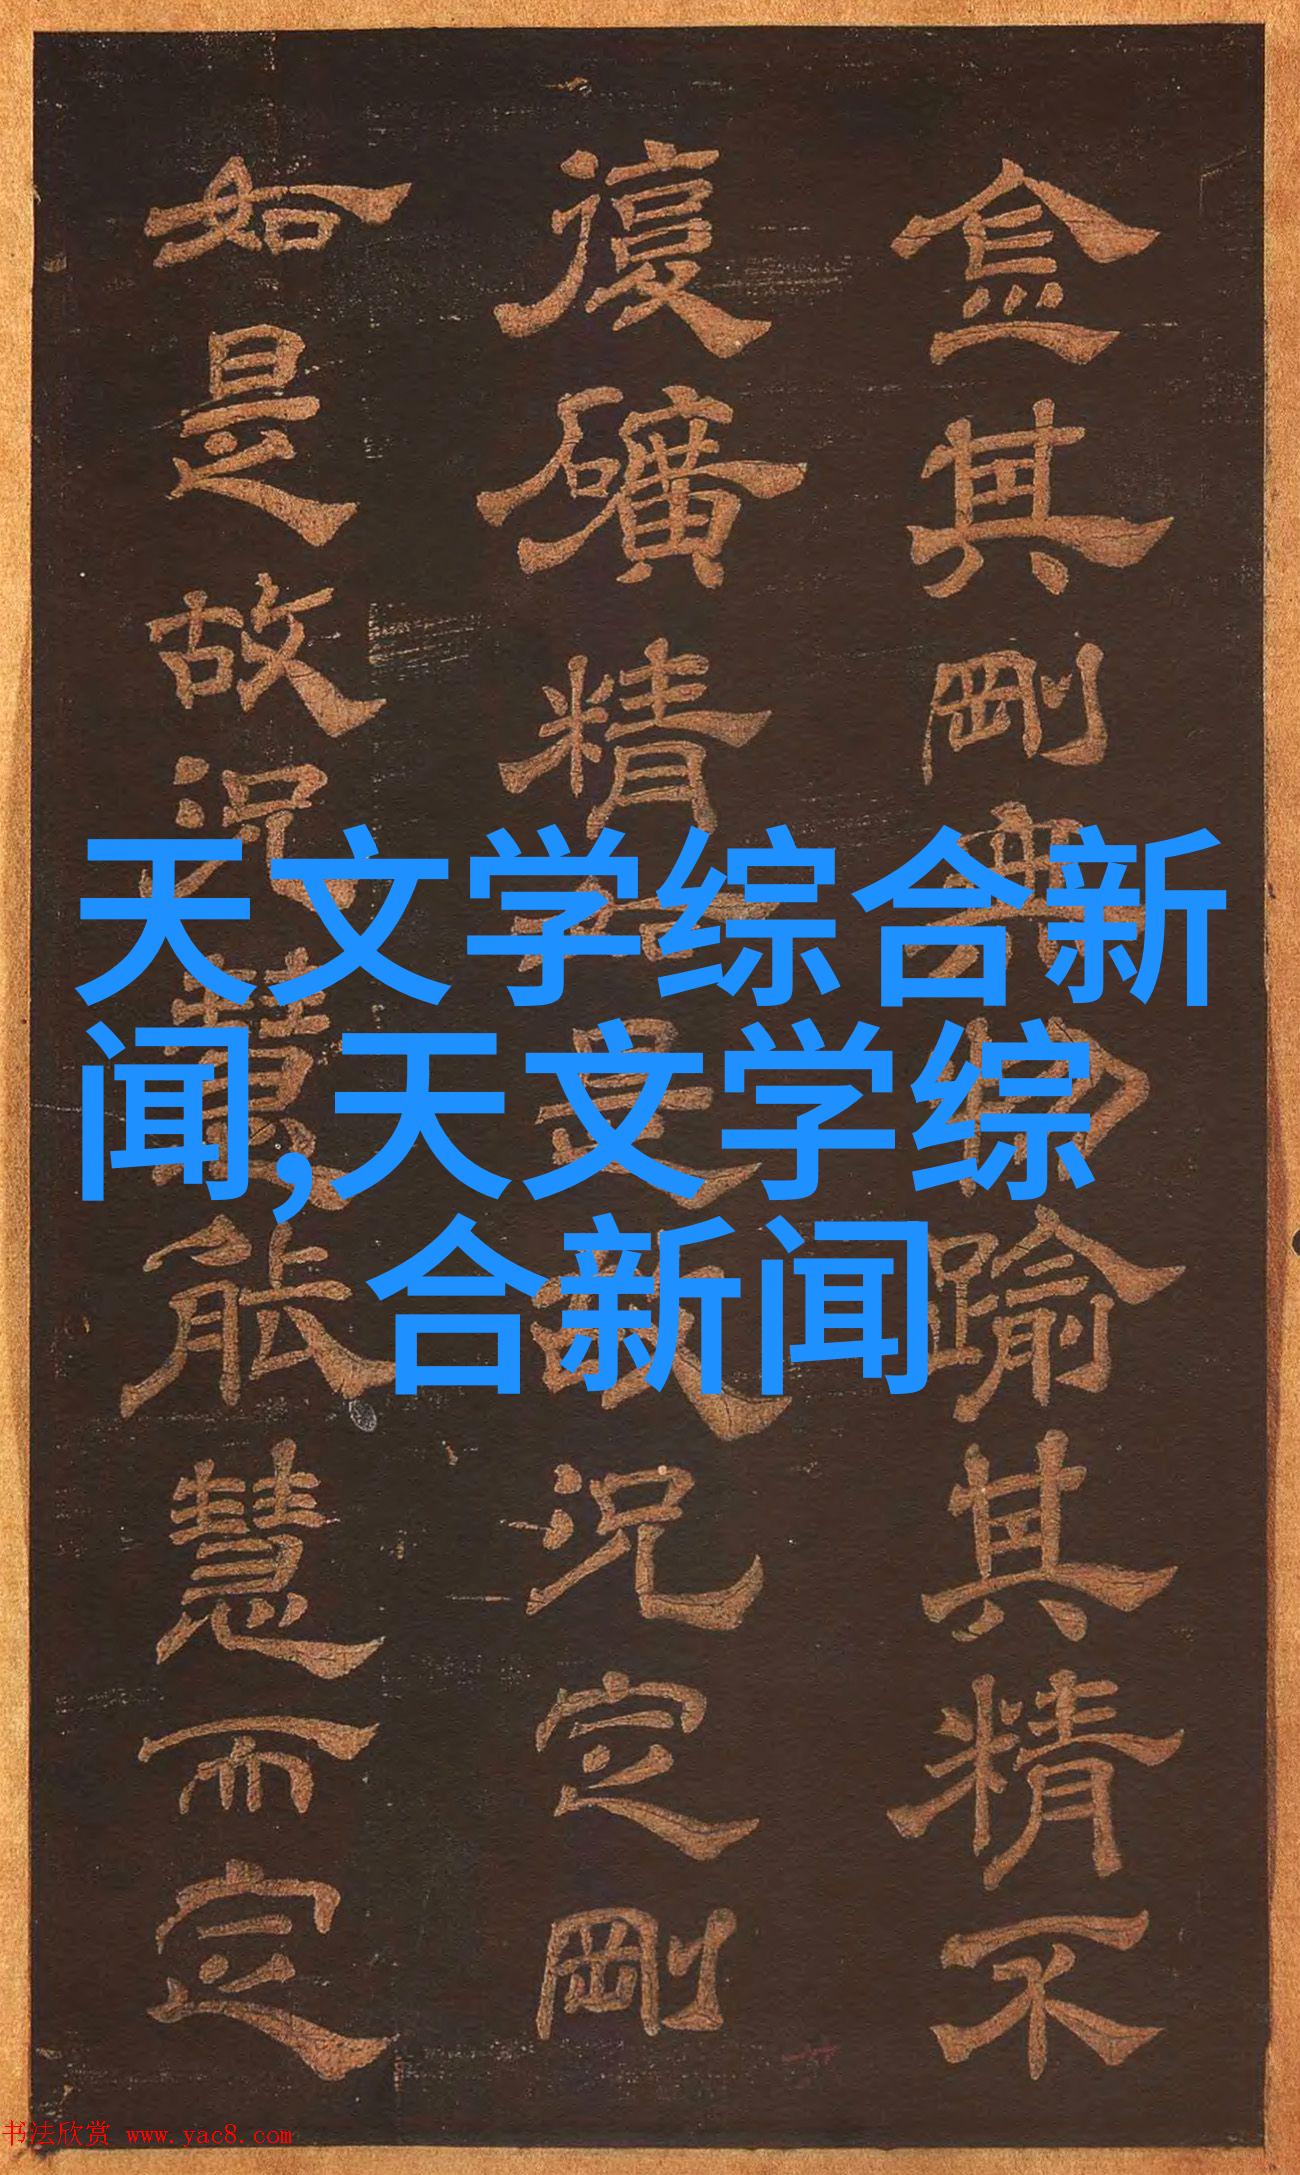 金其剛無物踰其精不
復礦精如是故況定剛
如是故況慧能慧而定
天文学综合新
闻,天文学综
合新闻
书法欣赏 www.yac8.com